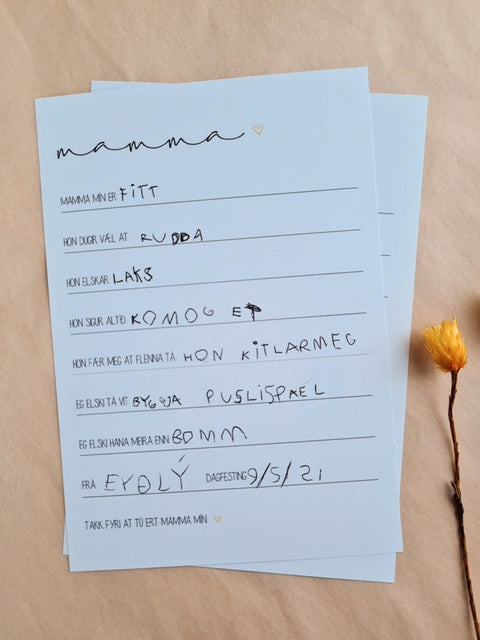 mamma
MAMMA MÍN ER FITT
HON DUGIR VÆL AT RUDDA
HON ELSKAR LAKS
HON SIGUR ALTÍÐ KOMOG ET
HON FÆR MEG AT FLENNA TÁ HON KITLARMEG
EG ELSKI TÁ VIT BYGGJA PUSLISPÆL
EG ELSKI HANA MEIRA ENN BOMM
FRÁ EYÐLÝ DAGFESTING 9/5/21
TAKK FYRI AT TÚ ERT MAMMA MÍN